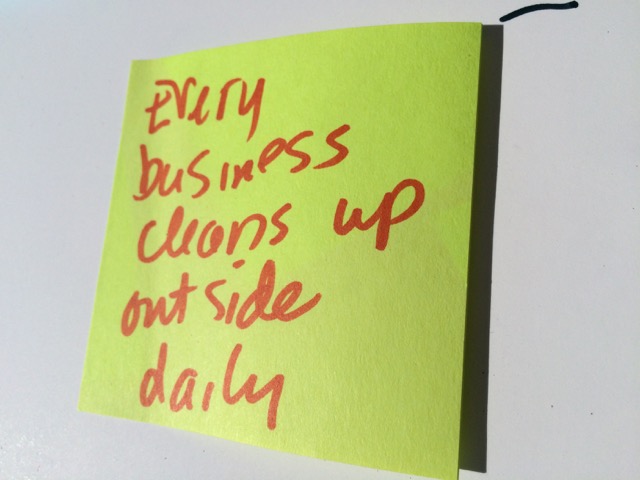 Every
business
cleans up
outside
daily